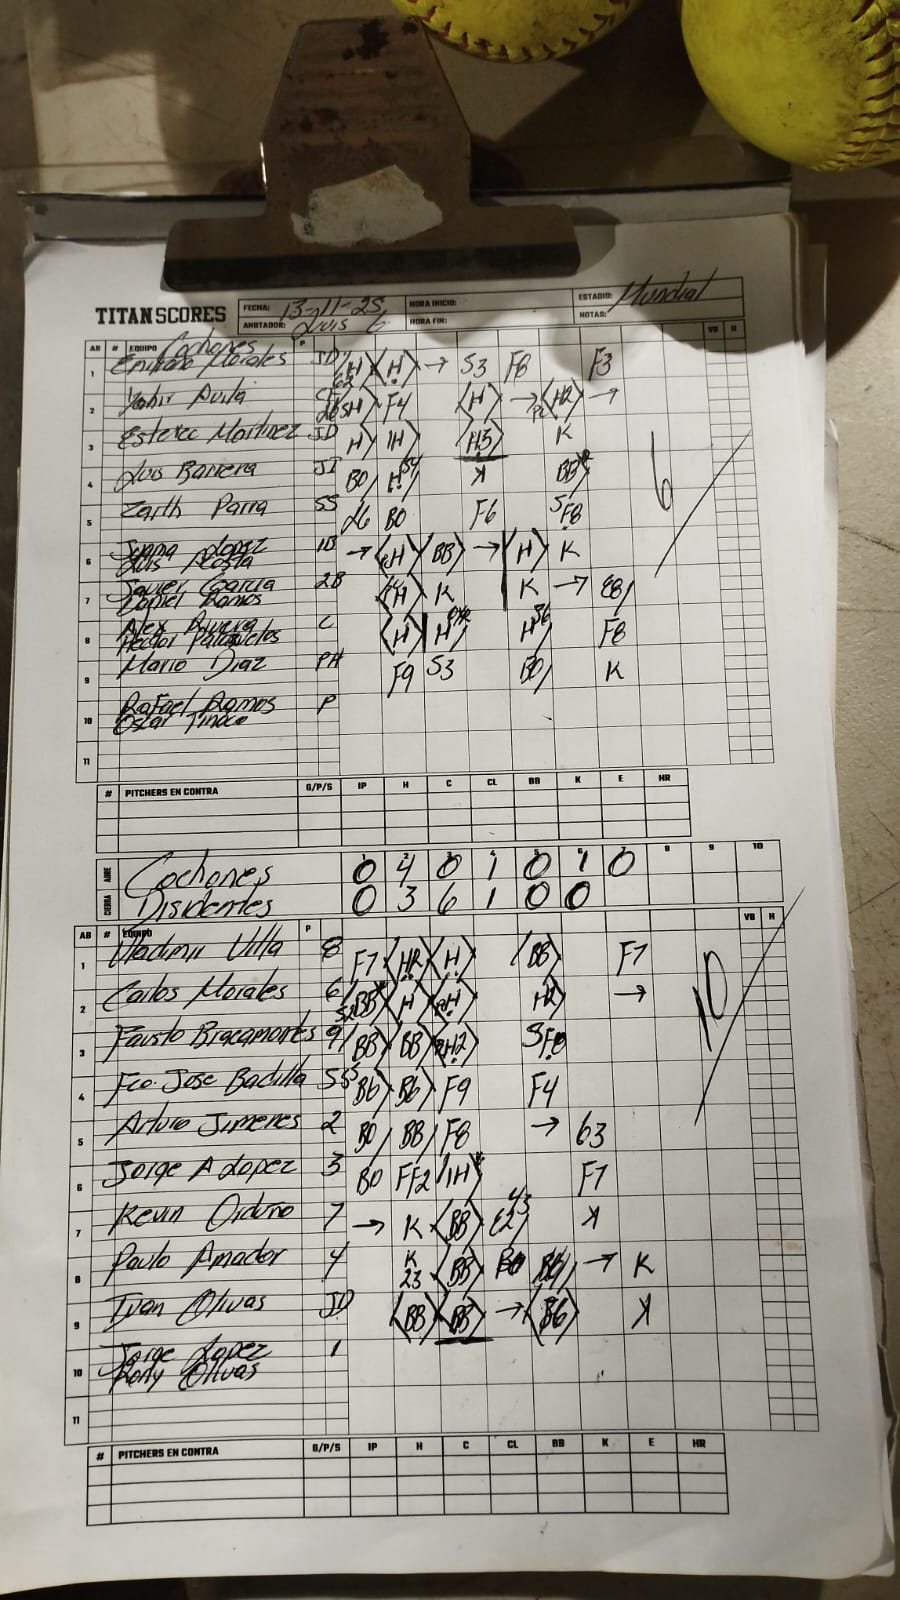 TITAN SCORES
FECHA: 13-11-25 HORA INICIO: ESTADIO: Mundial
ANOTADOR: Luis G HORA FIN: NOTAS:
AB # EQUIPO Cochones P VB H
1 Emiliano Morales JD H H → S3 F8 F3
2 Yahir Avila CF H F4 H → H2 →
3 Estevez Martinez JD H 1H H5 K
4 Luis Barrera JI BO H K BB
5 Zarth Parra SS 26 BO F6 SF8
6 Juama Lopez 1B → H BB → H K
Luis Acosta
7 Javier Garcia 2B H K K → E8
Daniel Ramos
8 Alex Rivera C H H H F8
Hector Palazuelos
9 Mario Diaz PH F9 S3 BO K
10 Rafael Ramos P
Oscar Tinoco
11
6
# PITCHERS EN CONTRA G/P/S IP H C CL BB K E HR
1 2 3 4 5 6 7 8 9 10
ABRE Cochones 0 4 0 1 0 1 0
CIERRA Disidentes 0 3 6 1 0 0
AB # EQUIPO P VB H
1 Vladimir Villa 8 F7 HR H BB F7
2 Carlos Morales 6 BB H H H2 →
3 Fausto Bracamontes 9 BB BB H2 SF8
4 Fco. Jose Badilla 5 B6 B6 F9 F4
5 Arturo Jimenes 2 BO BB F8 → 63
6 Jorge A Lopez 3 BO FF2 1H F7
7 Kevin Orduño 7 → K BB E2 K
8 Paulo Amador 4 K 23 BB → K
9 Ivan Olivas JD BB BB → B6 K
10 Jorge Lopez 1
Rony Olivas
11
10
# PITCHERS EN CONTRA G/P/S IP H C CL BB K E HR